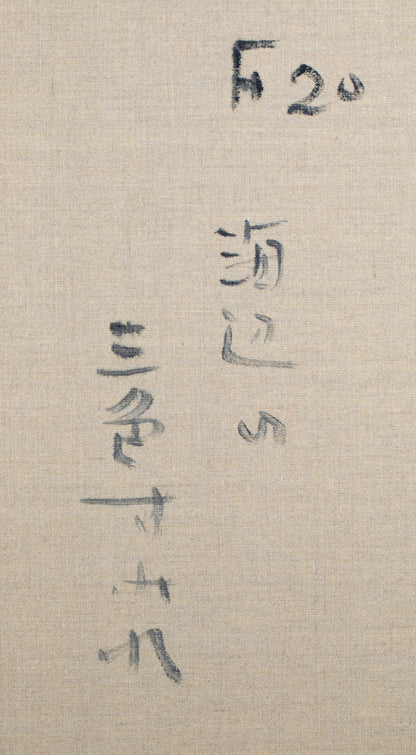 F20
海辺の
三色すみれ